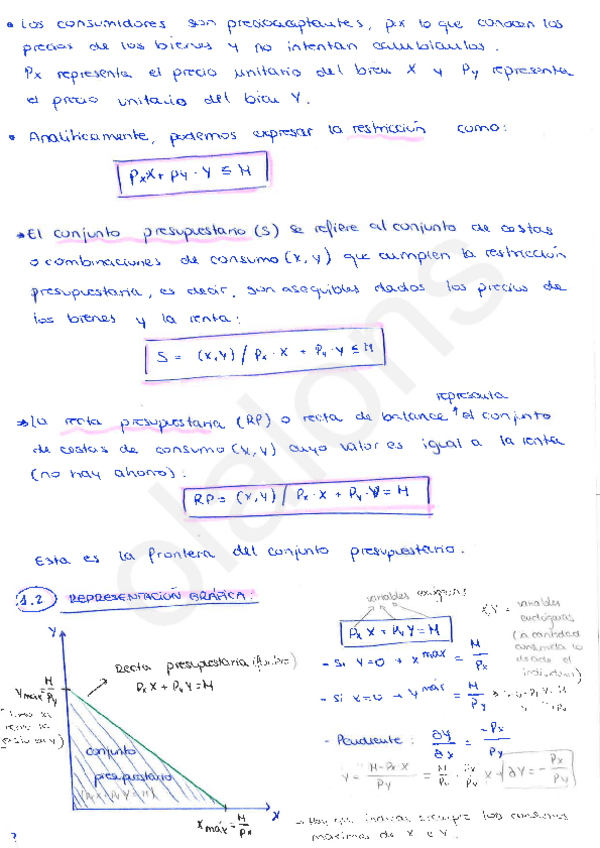 • Los consumidores son precioaceptantes, por lo que conocen los
precios de los bienes y no intentan cambiarlos.
Px representa el precio unitario del bien X y Py representa
el precio unitario del bien Y.
• Analíticamente, podemos expresar la restricción como:
PxX + Py · Y ≤ M
• El conjunto presupuestario (S) se refiere al conjunto de cestas
o combinaciones de consumo (x, y) que cumplen la restricción
presupuestaria, es decir, son asequibles dados los precios de
los bienes y la renta:
S = (X,Y) / Px · X + Py · Y ≤ M
representa
→ La recta presupuestaria (RP) o recta de balance ↑ el conjunto
de cestas de consumo (x, y) cuyo valor es igual a la renta
(no hay ahorro):
RP = (X,Y) / Px · X + Py · Y = M
Esta es la frontera del conjunto presupuestario.
olalons
1.2 REPRESENTACIÓN GRÁFICA:
variables exógenas
Px X + Py Y = M
X,Y = variables
endógenas
(la cantidad
consumida la
el
individuo)
- Si Y=0 → X máx = M/Px
- Si X=0 → Y máx = M/Py
- Pendiente: ∂Y/∂X = -Px/Py
Y = M-Px X/Py = M/Py
∂Y = - Px/Py
- Hay que indicar siempre los consumos
máximos de X e Y.
Y
Y máx = M/Py
Recta presupuestaria
Px X + Py Y = M
conjunto
presupuestario
X máx = M/Px
X